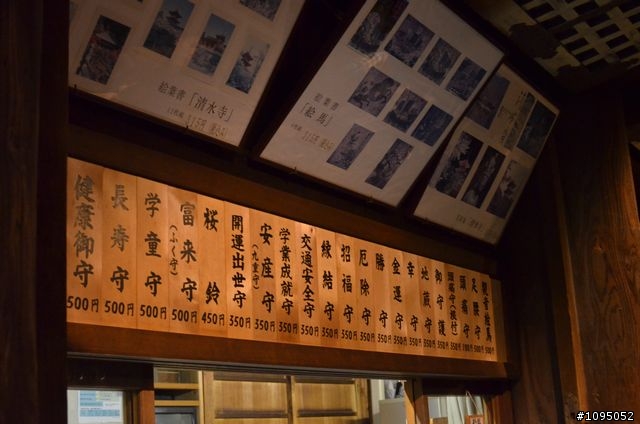 絵葉書「清水寺」
絵葉書
「絵馬」
健康御守 500円
長寿守 500円
学童守 500円
富来守 (ふく守) 500円
桜鈴 450円
開運出世守 350円
安産守 (九重守) 350円
学業成就守 350円
交通安全守 350円
縁結守 350円
招福守 350円
厄除守 350円
勝守 350円
金運守 350円
幸守 350円
地蔵守 350円
御守護 350円
頭痛守 
足腰守 500円
観音絵馬 500円
#1095052